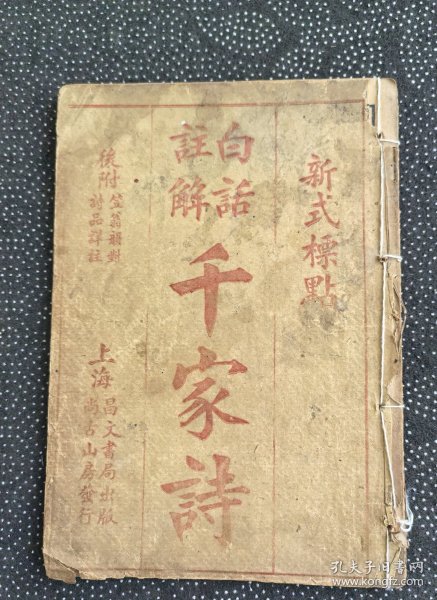 新式標點
白話
註解
千家詩
後附
笠翁韻對
詩品詳註
上海
昌文書局出版
尚古山房發行
孔夫子旧书网
www.kongfz.com